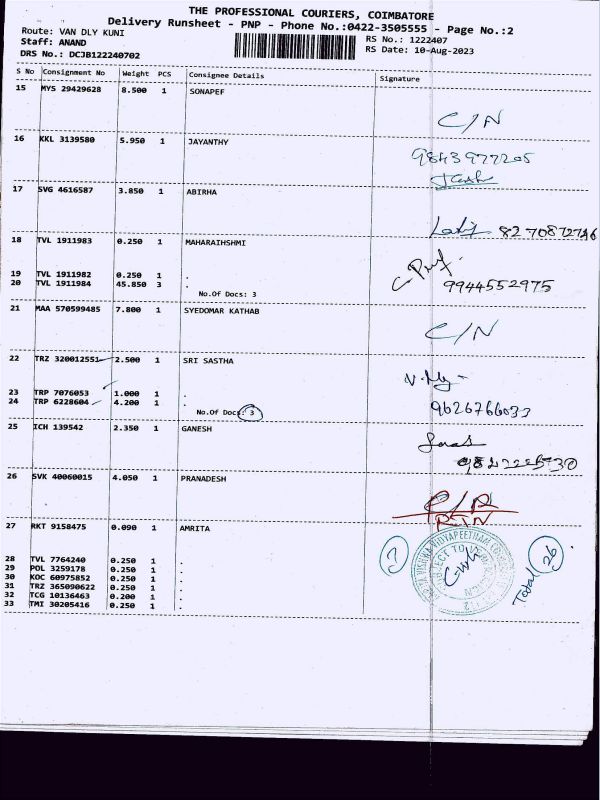 THE PROFESSIONAL COURIERS, COIMBATORE
Delivery Runsheet - PNP - Phone No.:0422-3505555 - Page No.:2
Route: VAN DLY KUNI
RS No.: 1222407
Staff: ANAND
RS Date: 10-Aug-2023
DRS No.: DCJB122240702
S No Consignment No Weight PCS Consignee Details Signature
15 MYS 29429628 8.500 1 SONAPEF
C/N
16 KKL 3139580 5.950 1 JAYANTHY
9843977205
17 SVG 4616587 3.850 1 ABIRHA
8270872746
18 TVL 1911983 0.250 1 MAHARAIHSHMI
19 TVL 1911982 0.250 1 .
20 TVL 1911984 45.850 3 .
9944552975
No.Of Docs: 3
21 MAA 570599485 7.800 1 SYEDOMAR KATHAB
C/N
22 TRZ 320012551 2.500 1 SRI SASTHA
23 TRP 7076053 1.000 1 .
24 TRP 6228604 4.200 1 .
9626766033
No.Of Docs: 3
25 ICH 139542 2.350 1 GANESH
26 SVK 40060015 4.050 1 PRANADESH
27 RKT 9158475 0.090 1 AMRITA
28 TVL 7764240 0.250 1 .
29 POL 3259178 0.250 1 .
30 KOC 60975852 0.250 1 .
31 TRZ 365090622 0.250 1 .
32 TCG 10136463 0.200 1 .
33 TMI 30205416 0.250 1 .
7
Total 26